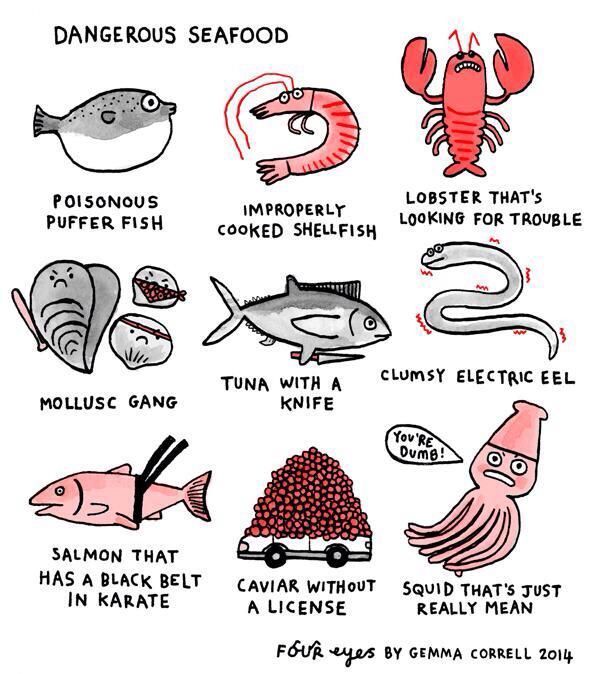 DANGEROUS SEAFOOD
POISONOUS
PUFFER FISH
IMPROPERLY
COOKED SHELLFISH
LOBSTER THAT'S
LOOKING FOR TROUBLE
MOLLUSC GANG
TUNA WITH A
KNIFE
CLUMSY ELECTRIC EEL
SALMON THAT
HAS A BLACK BELT
IN KARATE
CAVIAR WITHOUT
A LICENSE
YOU'RE
DUMB!
SQUID THAT'S JUST
REALLY MEAN
FOUR eyes BY GEMMA CORRELL 2014